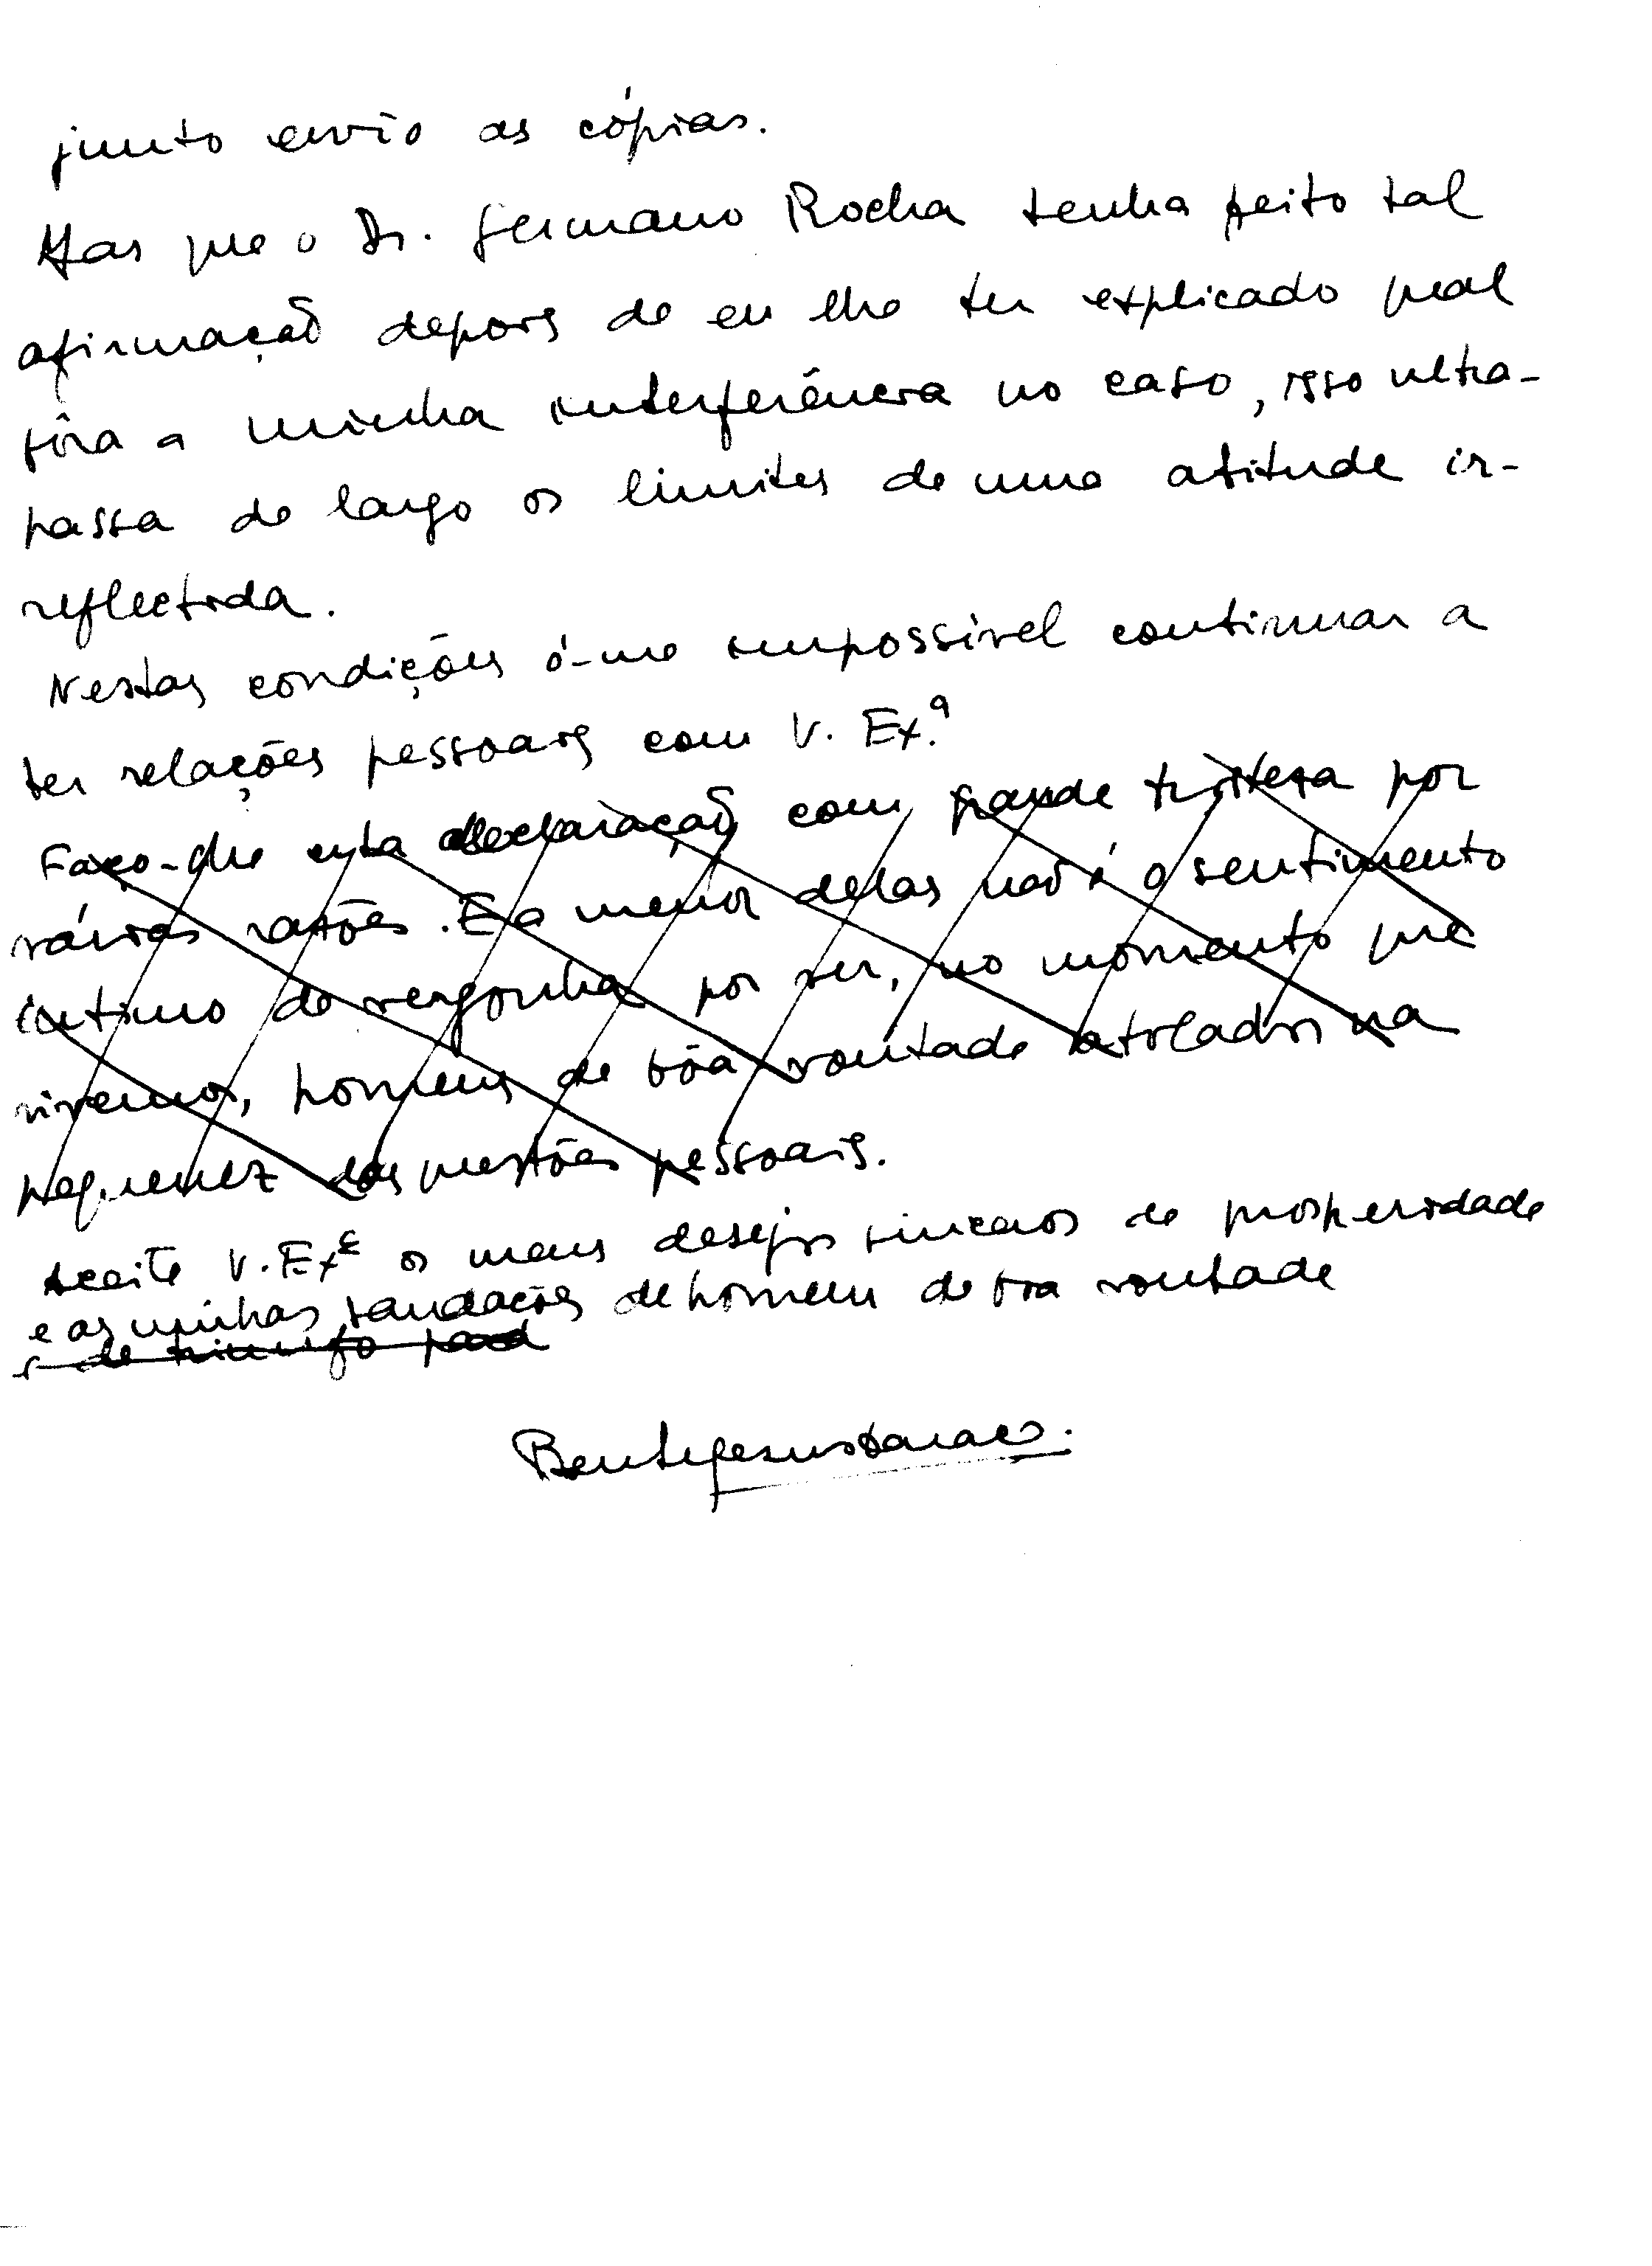 junto envio as cópias.
Mas que o Dr. Germano Rocha tenha feito tal
afirmação depois de eu lhe ter explicado qual
fôra a minha interferência no caso, isso ultra-
passa de largo os limites de uma atitude ir-
reflectida.
Nestas condições é-me impossível continuar a
ter relações pessoais com V. Ex.ª
Faço-lhe esta declaração com grande tristeza por
várias razões. E a menor delas não é o sentimento
íntimo de vergonha por ser, no momento que
vivemos, homens de bôa vontade atolados na
pequenez das questões pessoais.
Aceite V. Exª os meus desejos sinceros de prosperidade
e as minhas saudações de homem de boa vontade
de triunfo